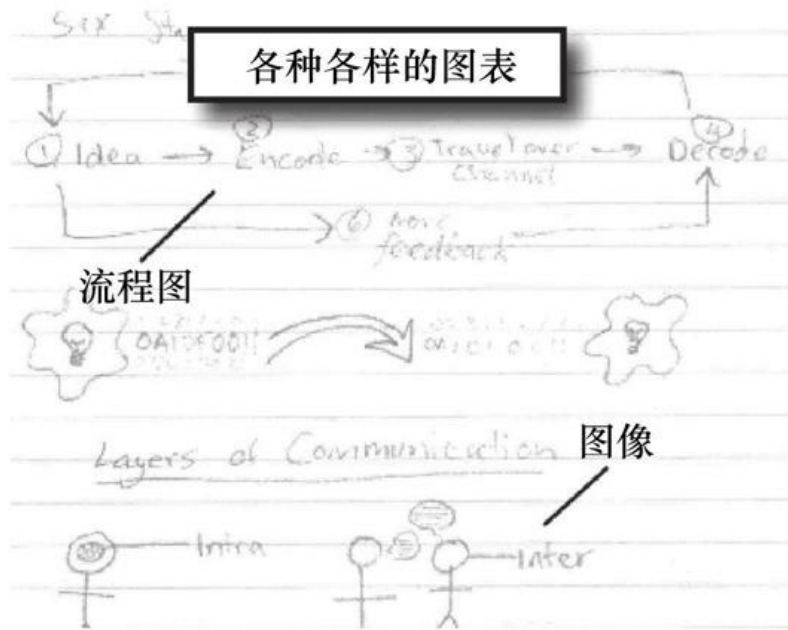 Six
各种各样的图表
① Idea → ② Encode → ③ Travel over → ④ Decode
Channel
⑥ more
feedback
流程图
Layers of Communication
图像
Intra
Inter